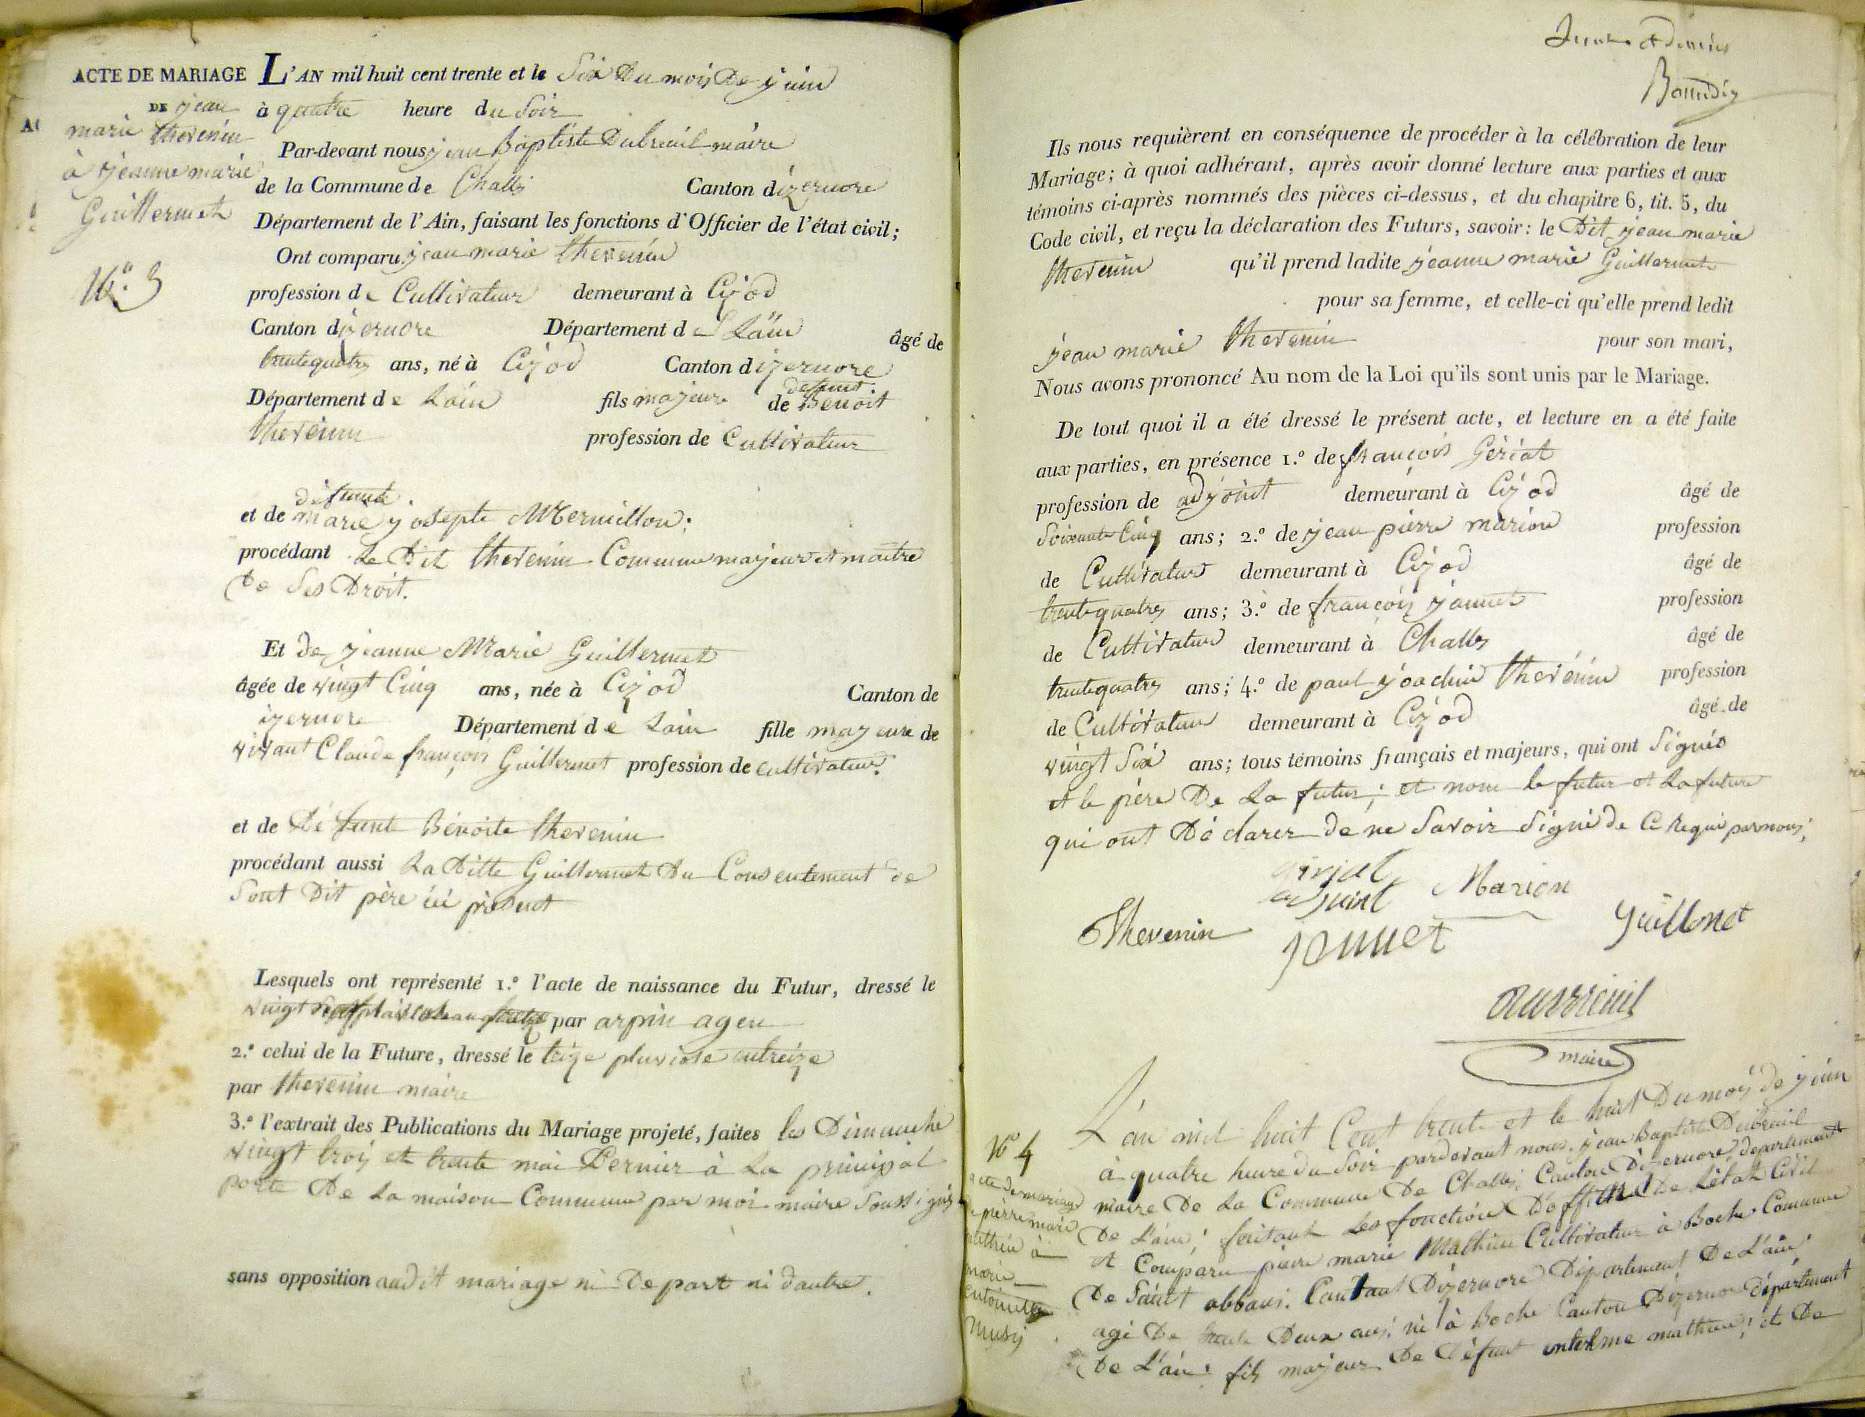 ACTE DE MARIAGE
DE jean
marie thevenin
à jeanne marie
Guillermet
N.º 3
L'AN mil huit cent trente et le Six Du mois De juin
à quatre heure du Soir
Par-devant nous jean Baptiste Dubreuil maire
de la Commune de Challes Canton dizernore
Département de l'Ain, faisant les fonctions d'Officier de l'état civil;
Ont comparu jean marie thevenin
profession de Cultivateur demeurant à Cizod
Canton dizernore Département de Lain âgé de
trentequatre ans, né à Cizod Canton dizernore
Département de Lain fils majeur de defunt Benoit
thevenin profession de Cultivateur
et de défunte marie josepte Mermillon;
procédant Le Dit thevenin Comme majeur et maitre
De Ses Droit.
Et de jeanne Marie Guillermet
âgée de vingt Cinq ans, née à Cizod Canton de
izernore Département de Lain fille majeure de
vivant Claude françois Guillermet profession de cultivateur.
et de Défunte Bénoite thevenin
procédant aussi La Ditte Guillermet Du Consentement de
Sont Dit père ici présent
Lesquels ont représenté 1.º l'acte de naissance du Futur, dressé le
vingt par arpin agen
2.º celui de la Future, dressé le treize pluviose antreize
par thevenin maire
3.º l'extrait des Publications du Mariage projeté, faites les Dimanche
vingt trois et trente mai Dernier à La principal
porte De La maison Commune par moi maire Soussigné
sans opposition audit mariage ni De part ni dautre.
Ils nous requièrent en conséquence de procéder à la célébration de leur
Mariage; à quoi adhérant, après avoir donné lecture aux parties et aux
témoins ci-après nommés des pièces ci-dessus, et du chapitre 6, tit. 5, du
Code civil, et reçu la déclaration des Futurs, savoir: le Dit jean marie
thevenin qu'il prend ladite jeanne marie Guillermet
pour sa femme, et celle-ci qu'elle prend ledit
jean marie thevenin pour son mari,
Nous avons prononcé Au nom de la Loi qu'ils sont unis par le Mariage.
De tout quoi il a été dressé le présent acte, et lecture en a été faite
aux parties, en présence 1.º de françois
profession de adjoint demeurant à Cizod âgé de
Soixante Cinq ans; 2.º de jean pierre marion profession
de Cultivateur demeurant à Cizod âgé de
trentequatre ans; 3.º de françois jannet profession
de Cultivateur demeurant à Challes âgé de
trentequatre ans; 4.º de paul joachin thevénin profession
de Cultivateur demeurant à Cizod âgé de
vingt Six ans; tous témoins français et majeurs, qui ont Signés
et le père De La futur; et nom le futur et La future
qui ont Dé clarer de ne Savoir Signé de Ce Requi parnous;
adjoint Marion
Thevenin Guillonet
maire
N.º 4
acte de mariage
de pierre marie
mathieu à
marie
antoinette
musy
L'an mil huit Cent trente et le huit Du mois de juin
à quatre heure Du Soir pardevant nous jean Baptiste Dubreuil
maire De La Commune De Challes Canton Dizernore departement
De L'ain; faitant Les fonction Dofficier De L'état Civil
et Comparu pierre marie Mathieu Cultivateur à Boche Commune
De Saint Canton Dizernore Département De L'ain;
agé De trente Deux ans; né à Boche Canton Dizernore département
De L'ain; fils majeur De Défunt mathieu; et De